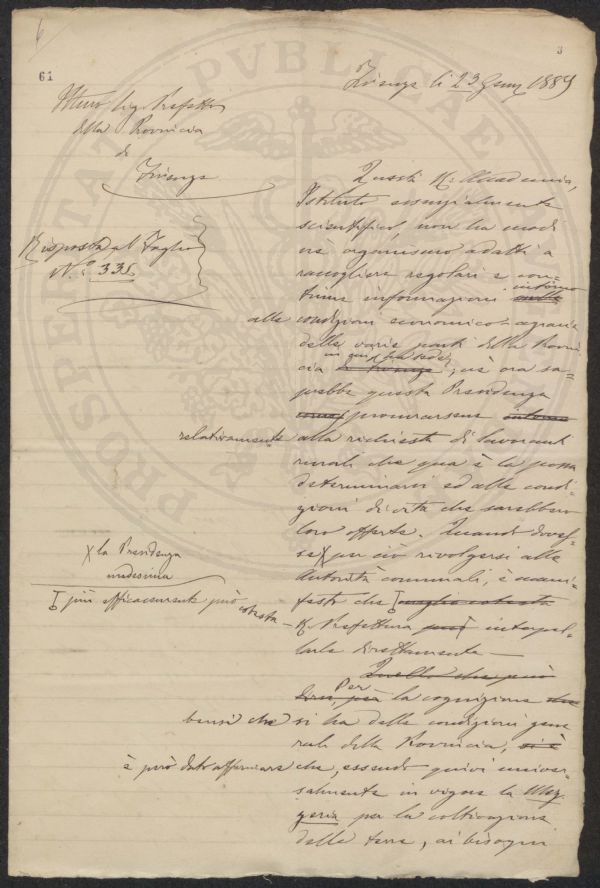 6
61
3
Firenze li 23 Genn 1889
Illmo Sig. Prefetto
della Provincia
di
Firenze
Risposta al Foglio
N.° 335
Questa R. Accademia,
Istituto essenzialmente
scientifico, non ha modi
nè organismo adatti a
raccogliere regolari e con-
tinue informazioni intorno sulle
alle condizioni economico agrarie
delle varie parti della Provin
cia in cui ha sede, di Firenze; nè ora sa-
prebbe questa Presidenza
procurarsene intorno
relativamente alla richiesta di lavoranti
rurali che qua e là possa
determinarsi ed alle condi-
zioni di vita che sarebbero
loro offerte. Quando doves-
se X per ciò rivolgersi alle
X la Presidenza
medesima
Autorità comunali, è mani-
festo che meglio cotesta
più efficacemente può cotesta
R. Prefettura può interpel-
larle direttamente —
Quello che può
dirsi, però Per la cognizione che
bensì che si ha delle condizioni gene
rali della Provincia, si è
è però dato affermare che, essendo quivi univer-
salmente in vigore la Mez
zeria per la coltivazione
delle terre, ai bisogni
PROSPERITATI PVBLICAE